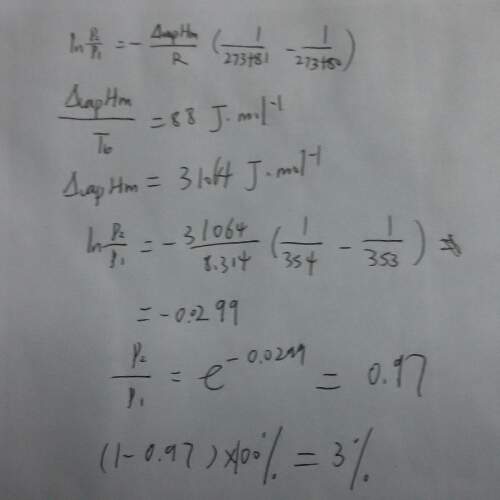 ln P₂/P₁ = - ΔvapHm/R (1/273+81 - 1/273+80)
ΔvapHm/Tb = 88 J·mol⁻¹
ΔvapHm = 31064 J·mol⁻¹
ln P₂/P₁ = - 31064/8.314 (1/354 - 1/353)
= -0.0299
P₂/P₁ = e^-0.0299 = 0.97
(1-0.97)×100% = 3%